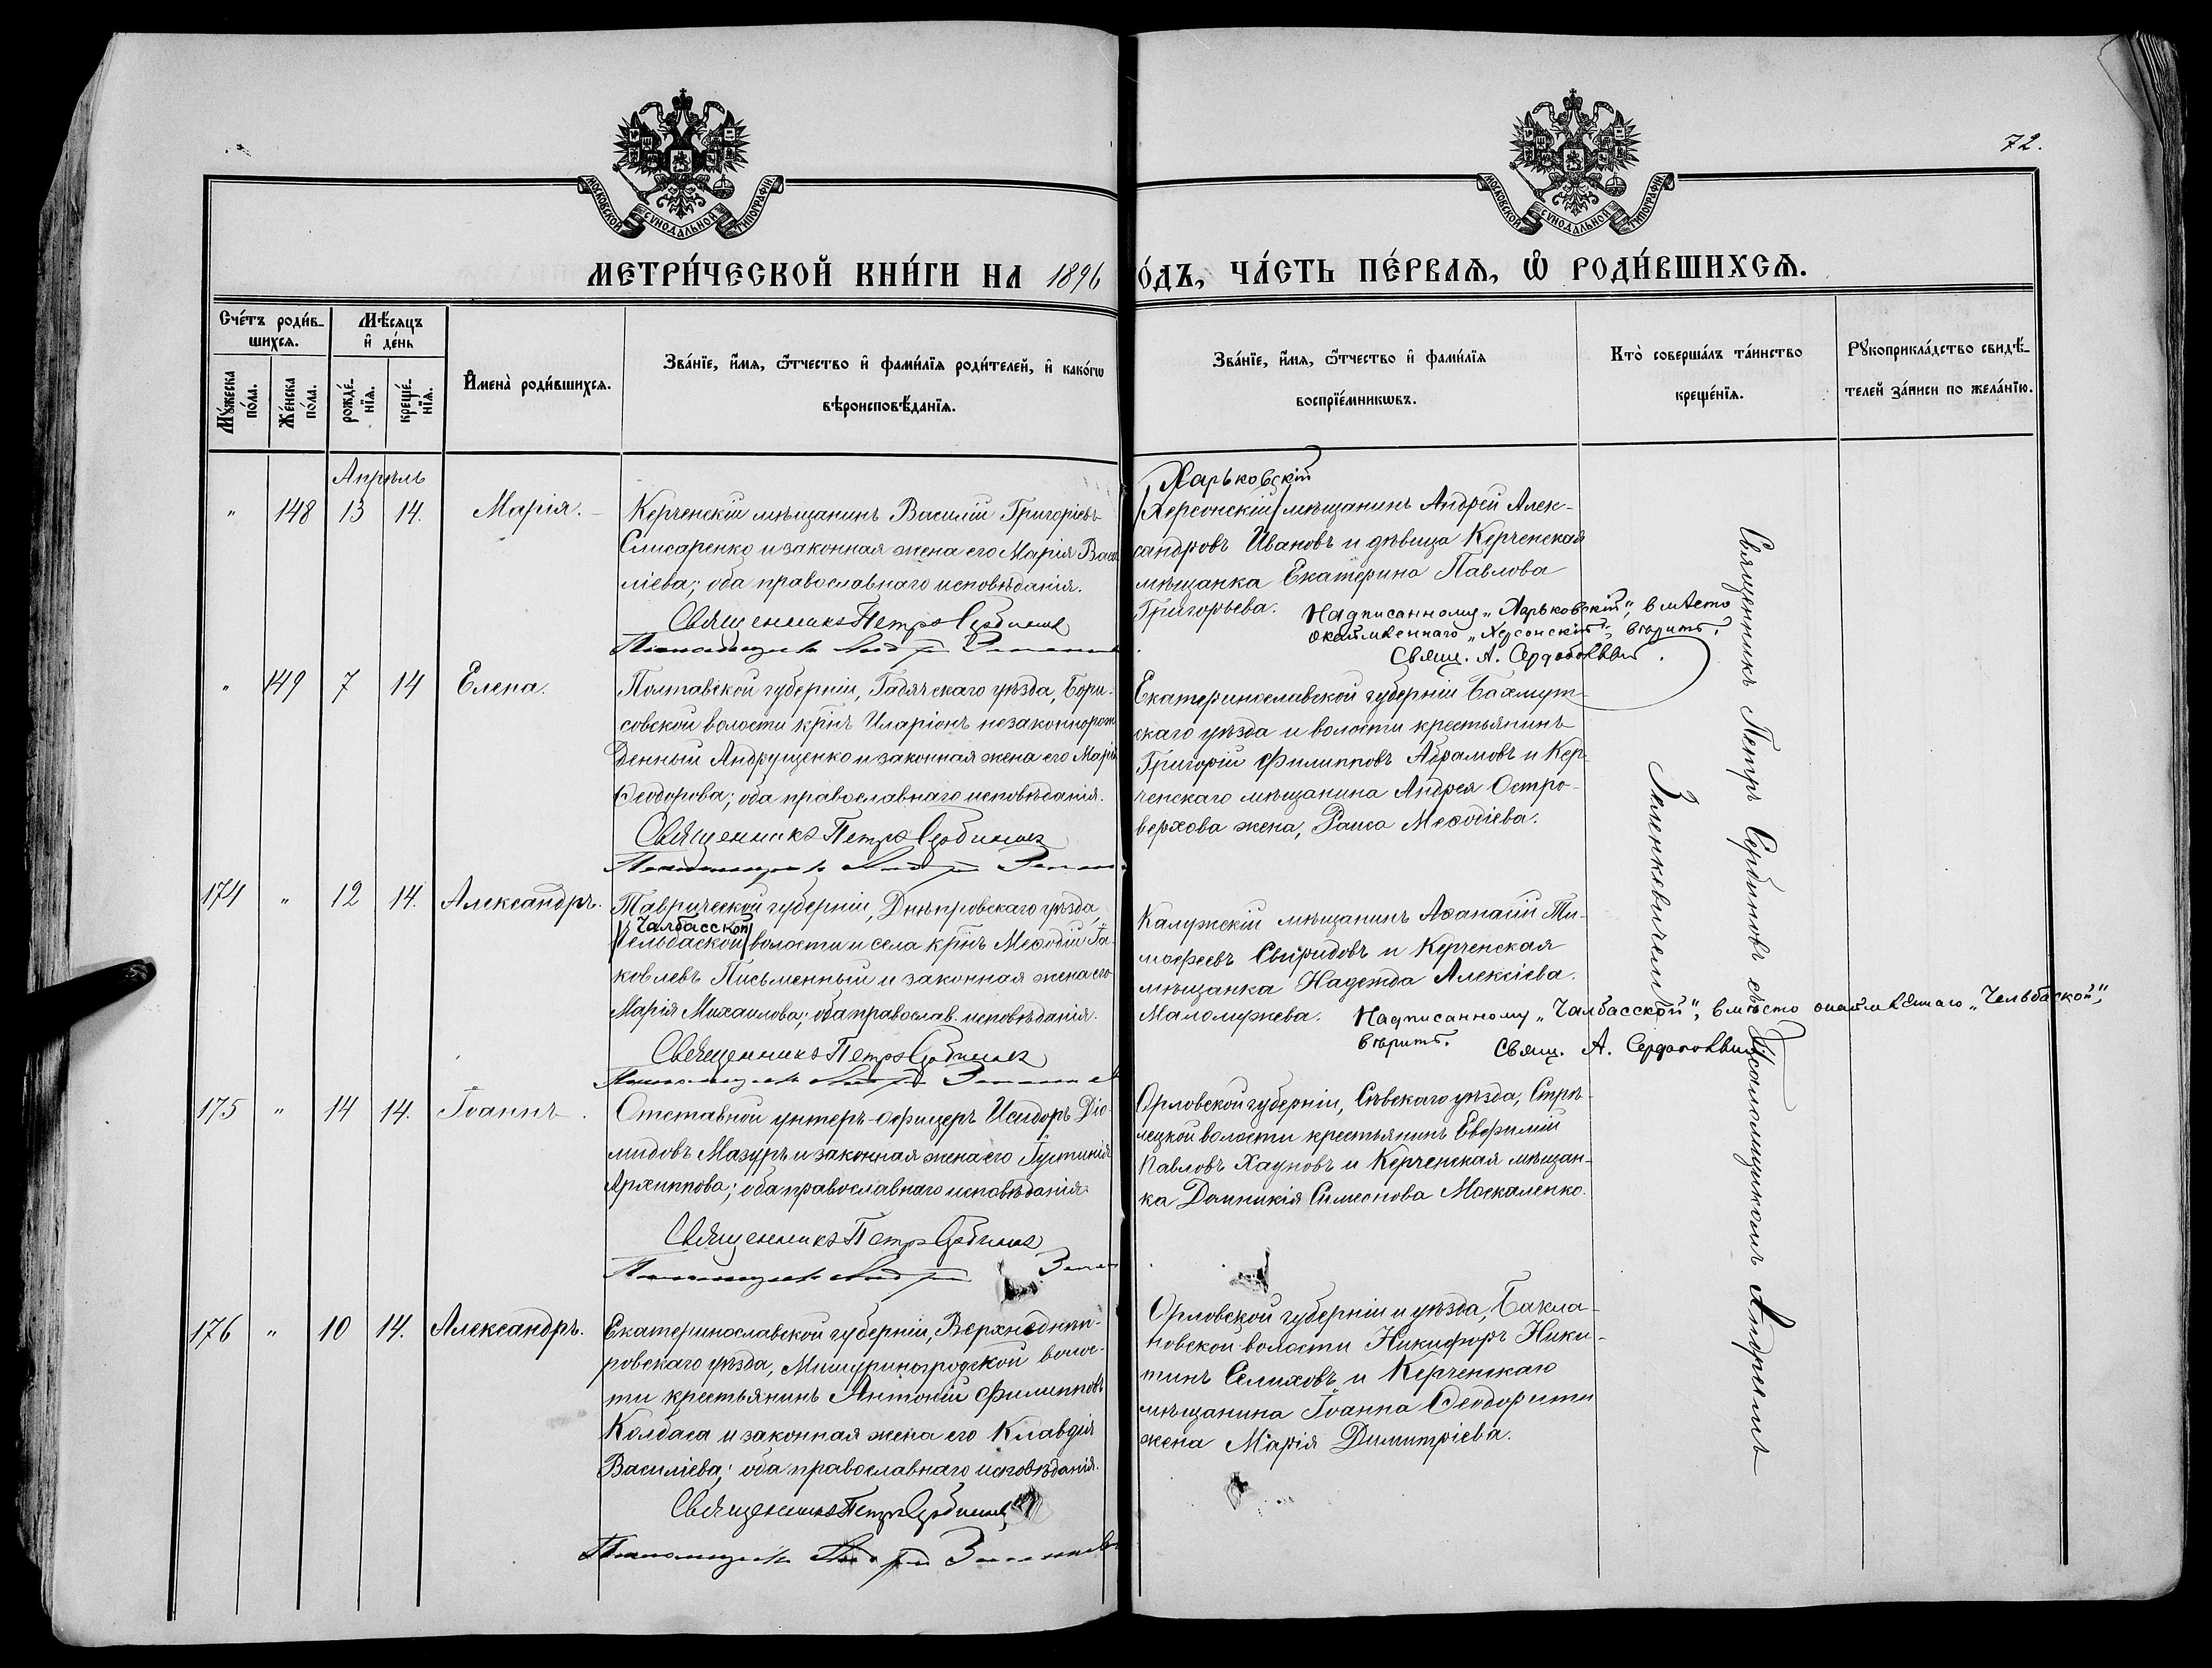 72.
МОСКОВСКОЙ СѴНОДАЛЬНОЙ ТИПОГРАФІИ
МОСКОВСКОЙ СѴНОДАЛЬНОЙ ТИПОГРАФІИ
МЕТРИ́ЧЕСКОЙ КНИ́ГИ НА 1896
О́ДЪ, ЧА́СТЬ ПЕ́РВАѦ, Ѡ҆ РОДИ́ВШИХСѦ.
Сче́тъ роди́в-
шихсѧ.
Мѣ́сѧцъ
и҆ де́нь
Мꙋ́жеска
по́ла.
Же́нска
по́ла.
рожде́-
нїѧ.
креще́-
нїѧ.
И҆мена̀ роди́вшихсѧ.
Зва́нїе, и҆́мѧ, ѻ҆́тчество и҆ фами́лїѧ роди́телей, и҆ како́гѡ
вѣроисповѣ́данїѧ.
Зва́нїе, и҆́мѧ, ѻ҆́тчество и҆ фами́лїѧ
воспрїе́мникѡвъ.
Кто̀ соверша́лъ та́инство
креще́нїѧ.
Рꙋкоприкла́дство свидѣ́-
телей за́писи по жела́нїю.
Апрѣль
" 148 13 14. Марія.
Керченскій мѣщанинъ Василій Григоріевъ
Слисаренко и законная жена его Марія Васи
ліева; оба православнаго исповѣданія.
Священникъ Петръ Сербиновъ
Псаломщикъ Андрей
Харьковскій
Херсонскій мѣщанинъ Андрей Алек-
сандровъ Ивановъ и дѣвица Керченская
мѣщанка Екатерина Павлова
Григорьева. Надписанному „Харьковскій", вмѣсто
окаймленнаго „Херсонскій", вѣрить.
Свящ. А.
" 149 7 14 Елена.
Полтавской губерніи, Гадячскаго уѣзда, Бори-
совской волости крнъ Иларіонъ незаконнорож
денный Андрущенко и законная жена его Марія
Ѳеодорова; оба православнаго исповѣданія.
Священникъ Петръ Сербиновъ
Псаломщикъ Андрей
Екатеринославской губерніи Бахмут-
скаго уѣзда и волости крестьянинъ
Григорій Филипповъ Абрамовъ и Кер-
ченскаго мѣщанина Андрея Остро-
верхова жена, Раиса Меѳодіева.
174 " 12 14. Александръ.
Таврической губерніи, Днѣпровскаго уѣзда,
Чалбасской
Чельбаской волости и села крнъ Меѳодій Іа-
ковлевъ Письменный и законная жена его
Марія Михаилова; оба православ. исповѣданія.
Священникъ Петръ Сербиновъ
Псаломщикъ Андрей
Калужскій мѣщанинъ Аѳанасій Ти-
моѳеевъ Свиридовъ и Керченская
мѣщанка Надежда Алексіева
Маломужева. Надписанному „Чалбасской", вмѣсто окаймленнаго „Чельбаской",
вѣрить. Свящ. А.
175 " 14 14. Іоаннъ.
Отставной унтеръ-офицеръ Исидоръ Діо-
мидовъ Мазуръ и законная жена его Іустинія
Архиппова; оба православнаго исповѣданія.
Священникъ Петръ Сербиновъ
Псаломщикъ Андрей
Орловской губерніи, Сѣвскаго уѣзда, Стрѣ-
лецкой волости крестьянинъ Евфимій
Павловъ Хауновъ и Керченская мѣщан-
ка Домникія Симеонова Москаленко.
176 " 10 14. Александръ.
Екатеринославской губерніи, Верхнеднѣп-
ровскаго уѣзда, Мишуриногродской волос-
ти крестьянинъ Антоній Филипповъ
Колбаса и законная жена его Клавдія
Василіева; оба православнаго исповѣданія.
Священникъ Петръ Сербиновъ
Псаломщикъ Андрей
Орловской губерніи и уѣзда, Бакла-
новской волости Никифоръ Ники-
тинъ Селиховъ и Керченскаго
мѣщанина Іоанна Ѳеодорити
жена Марія Димитріева.
Священникъ Петръ Сербиновъ съ Псаломщикомъ Андреемъ
Зиленкевичемъ